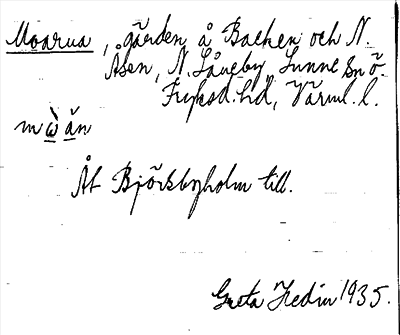 Moarna, gården å Backen och N.
Åsen, N. Långby Sunne sn ö.
Fryksd. hd, Värml. l.
m ẁ ǎn
Åt Björkbyholm till.
Greta Hedin 1935.